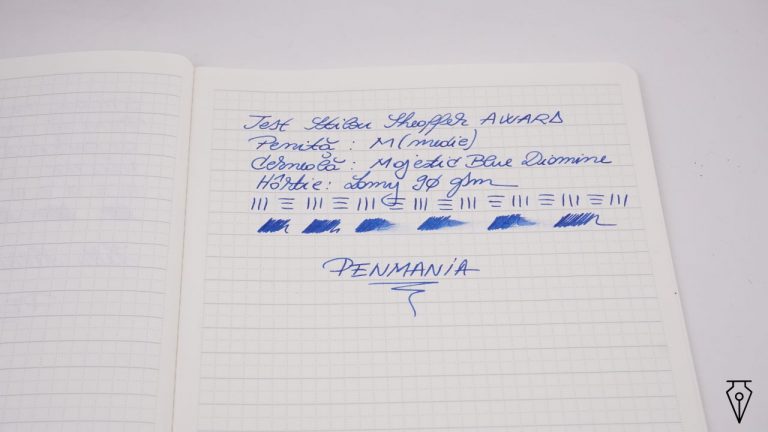 Test Stilou Sheaffer AWARD
Peniță : M (medie)
Cerneală : Majestic Blue Diamine
Hârtie : Lamy 90 gsm
PENMANIA